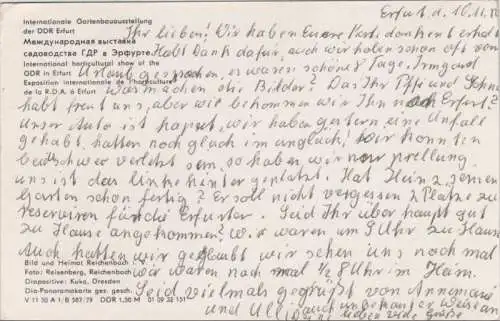 Internationale Gartenbauausstellung
der DDR Erfurt
Международная выставка
садоводства ГДР в Эрфурте
International horticultural show of the
GDR in Erfurt
Exposition internationale de l'horticulture
de la R.D.A. à Erfurt
Erfurt d. 16.11.
Ihr Lieben! Wir haben Eure Karte dankend erhalt
Habt Dank dafür, auch wir haben schon oft vom
Urlaub gesprochen, es waren schöne Tage. Irmgard
was machen die Bilder? Das Ihr
habt freut uns, aber wie bekommen wir Ihn nach Erfurt?
Unser Auto ist kaputt, wir haben gestern eine Unfall
gehabt, hatten noch glück im unglück! Wir konnten
schwer verletzt sein, so haben wir nur prellung
uns ist das linke hinter geplatzt. Hat Heinz seinen
Garten schon fertig? Er soll nicht vergessen 2 Plätze zu
reservieren für die Erfurter. Seid Ihr überhaupt gut
zu Hause angekommen? Wir waren um 9 Uhr zu Hause
Auch hatten wir geglaubt wir sehen uns noch mal
wir waren noch mal 1/2 8 Uhr im Heim.
Seid vielmals gegrüßt von Annemarie
und Ulli auch unbekannter Weise an
lieben viele Grüße
Bild und Heimat Reichenbach
Foto: Reisenberg, Reichenbach
Diapositive: Kuka, Dresden
Dia-Panoramakarte ges. gesch.
V 11 30 A 1/B 587/79 DDR 1,50 M 01 09 32 151